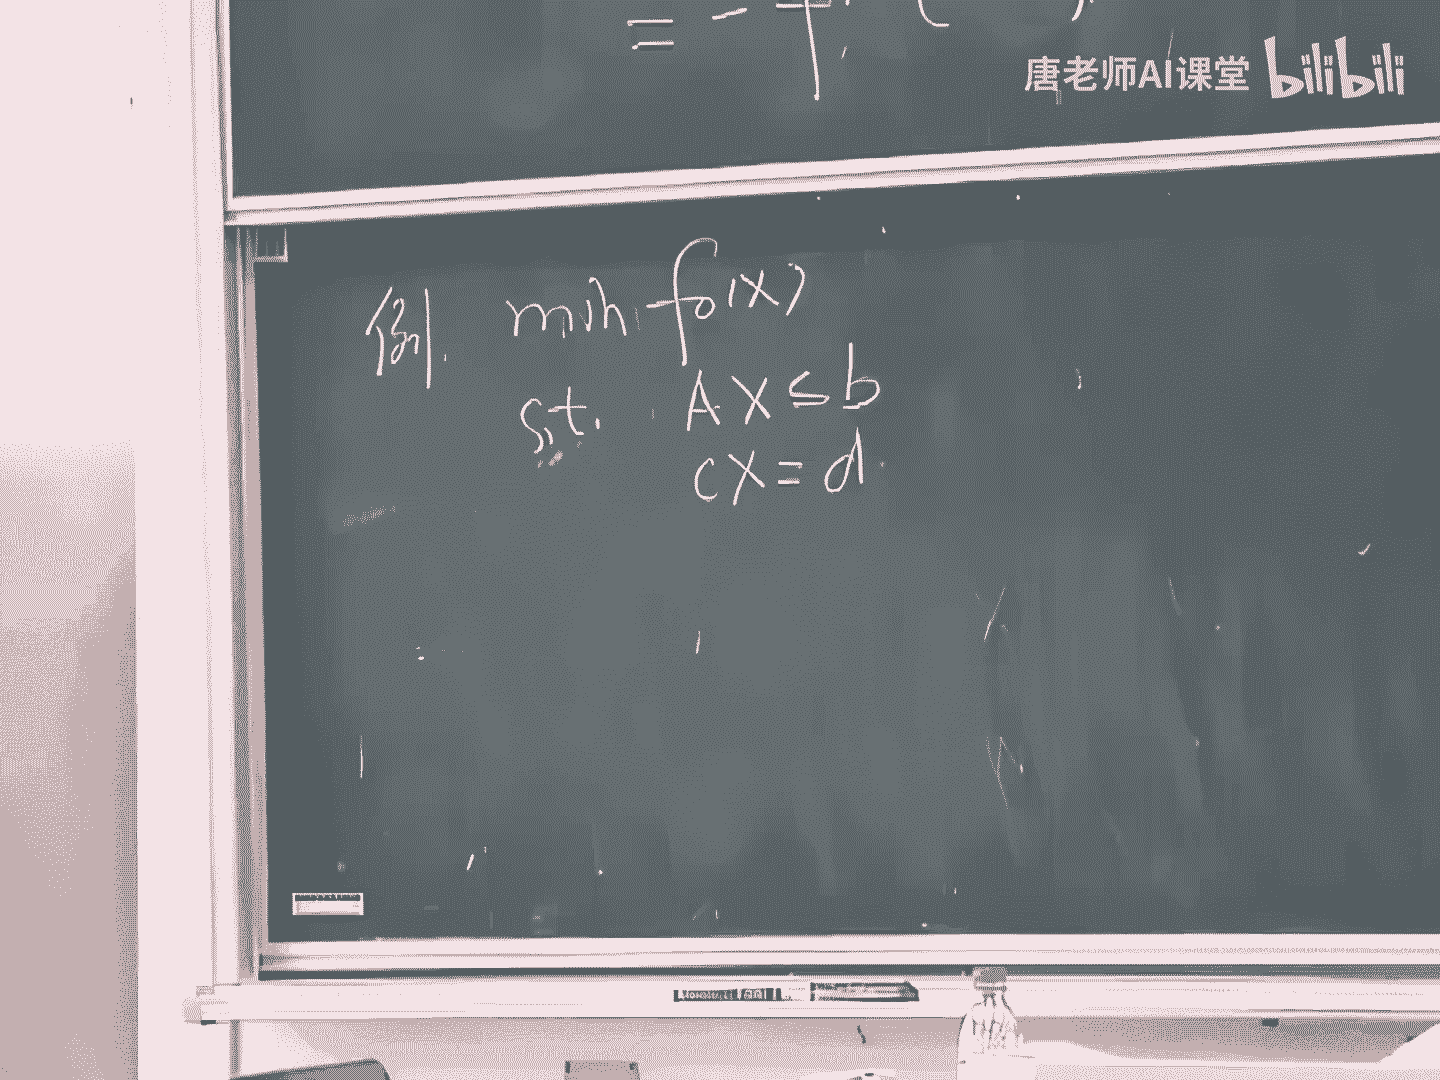 = -
唐老师AI课堂 bilibili
例. min f₀(x)
s.t. Ax ≤ b
Cx = d